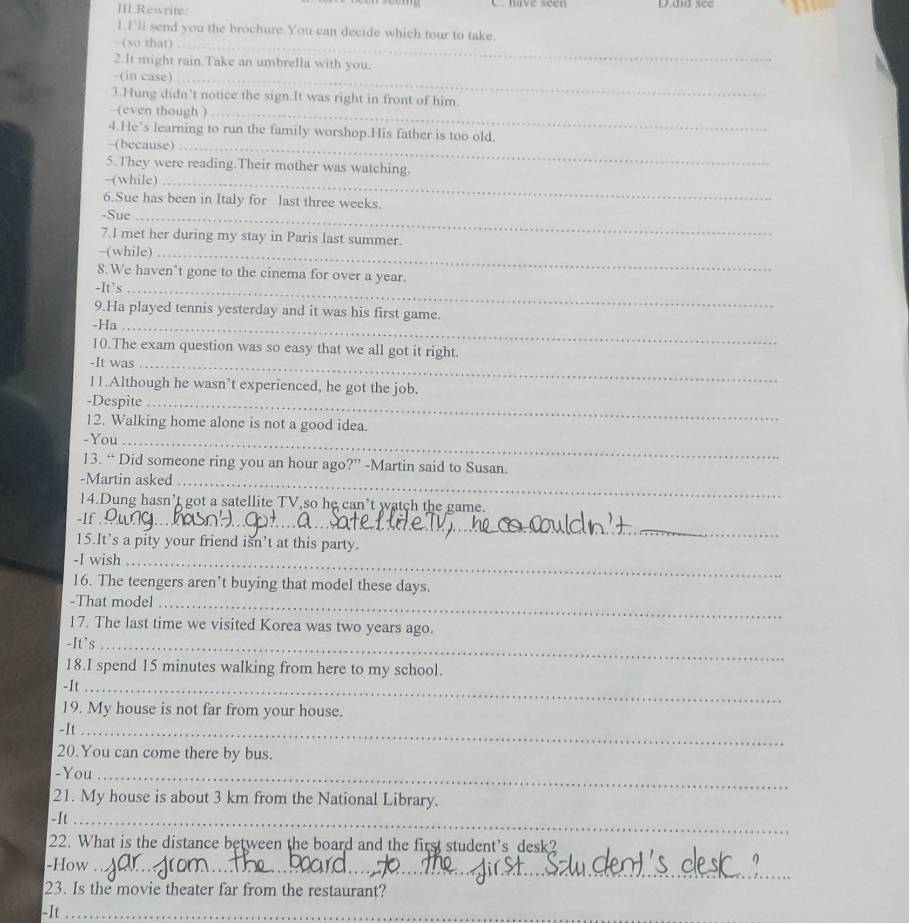 C. have seen D.did see
III.Rewrite:
1.I'll send you the brochure.You can decide which tour to take.
-(so that)
2.It might rain.Take an umbrella with you.
-(in case)
3.Hung didn't notice the sign.It was right in front of him.
-(even though )
4.He's learning to run the family worshop.His father is too old.
-(because)
5.They were reading.Their mother was watching.
-(while)
6.Sue has been in Italy for last three weeks.
-Sue
7.I met her during my stay in Paris last summer.
-(while)
8.We haven't gone to the cinema for over a year.
-It's
9.Ha played tennis yesterday and it was his first game.
-Ha
10.The exam question was so easy that we all got it right.
-It was
11.Although he wasn't experienced, he got the job.
-Despite
12. Walking home alone is not a good idea.
-You
13. “ Did someone ring you an hour ago?” -Martin said to Susan.
-Martin asked
14.Dung hasn't got a satellite TV,so he can't watch the game.
-If Dung hasn't got a satellite TV, he couldn't
15.It's a pity your friend isn't at this party.
-I wish
16. The teengers aren't buying that model these days.
-That model
17. The last time we visited Korea was two years ago.
-It's
18.I spend 15 minutes walking from here to my school.
-It
19. My house is not far from your house.
-It
20.You can come there by bus.
-You
21. My house is about 3 km from the National Library.
-It
22. What is the distance between the board and the first student's desk?
-How far from the board to the first student's desk ?
23. Is the movie theater far from the restaurant?
-It